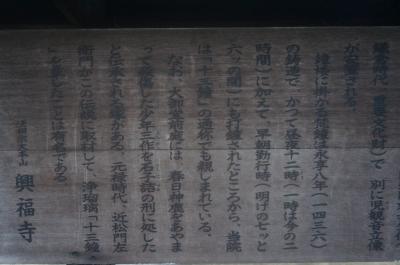 鎌倉時代 重要文化財）で 別に児観音立像
が安置される。
楼に掛かる梵鐘は永享八年（一四三六）
の鋳造で、かつて昼夜十二時（一時は今の二
時間）に加えて、早朝勤行時（明けの七ッと
六ッの間）にも打鐘されたところから、当院
は「十三鐘」の通称でも親しまれている。
なお、大御堂前庭には、春日神鹿をあやま
って殺傷した少年三作を石子詰の刑に処した
と伝承される塚がある。元禄時代、近松門左
衛門がこの伝説に取材して、浄瑠璃「十三鐘
」を草したことは有名である
法相宗大本山
興福寺